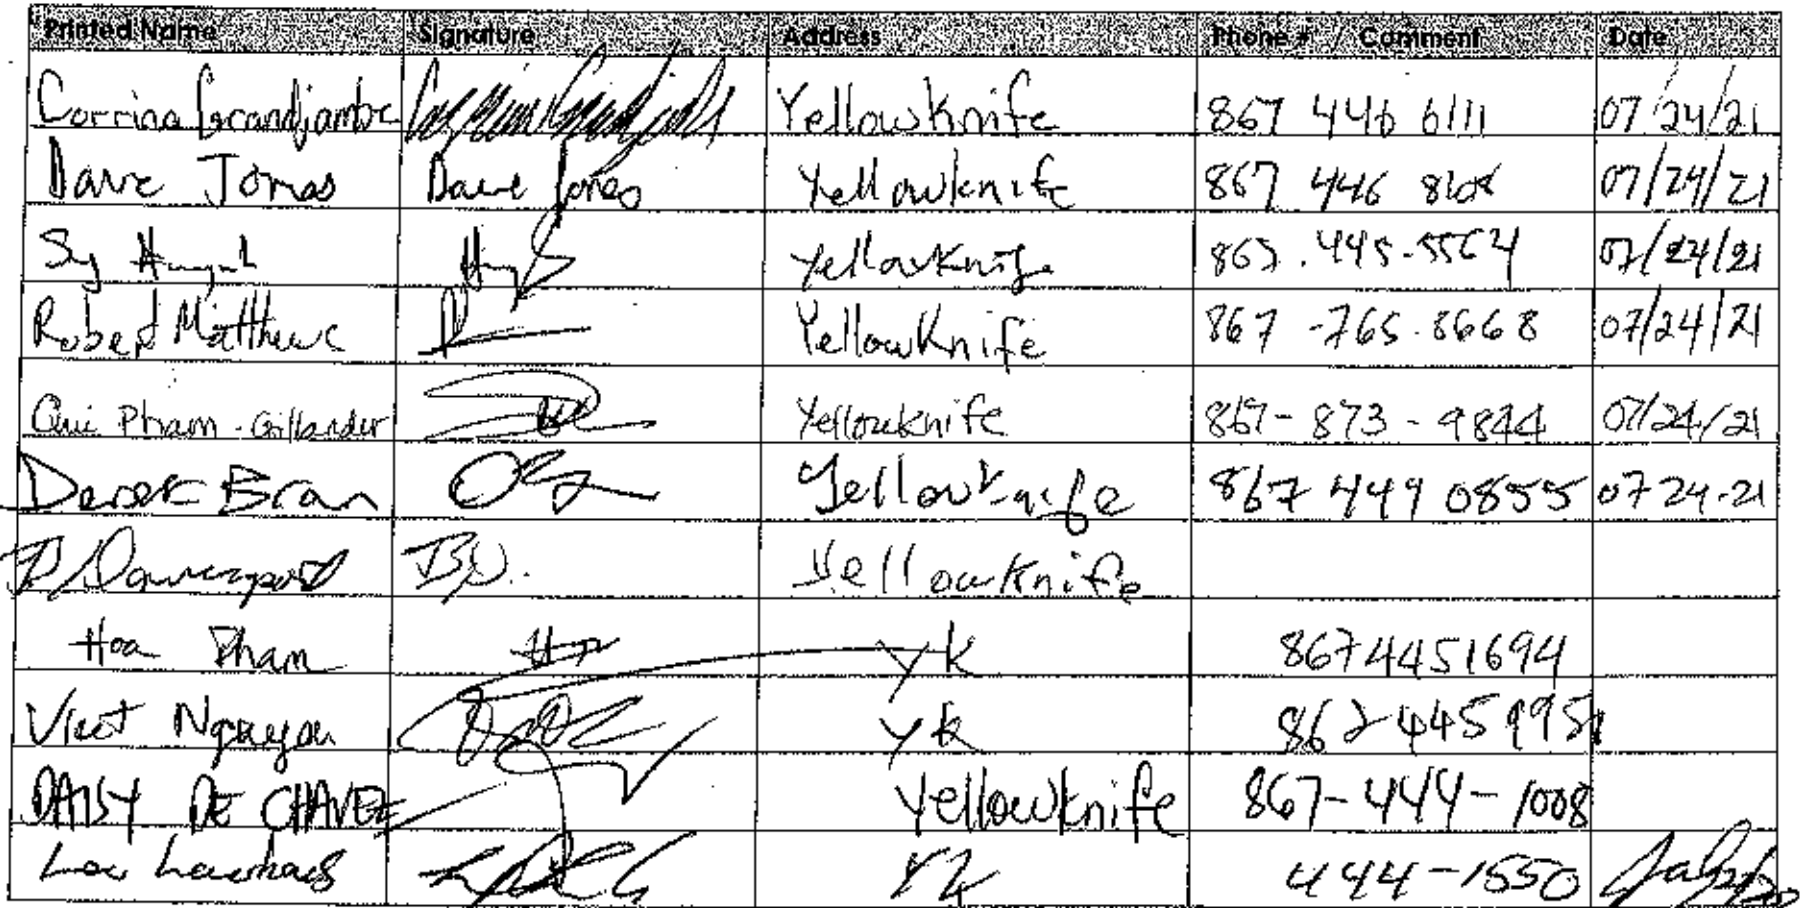 Printed Name Signature Address Phone # / Comment Date
Corrina Grandjambe Yellowknife 867 446 6111 07/24/21
Dave Jones Dave Jones Yellowknife 867 446 07/24/21
Sy Yellowknife 867.445-5564 07/24/21
Robert Matthews Yellowknife 867-765-8668 07/24/21
Pham-Gillander Yellowknife 867-873-9844 07/24/21
Derek Bran Yellowknife 867 449 0855 07 24-21
Davenport B.D. Yellowknife
Hoa Pham YK 8674451694
Viet Nguyen YK
DAISY DE CHAVEZ Yellowknife 867-444-1008
YK 444-1550